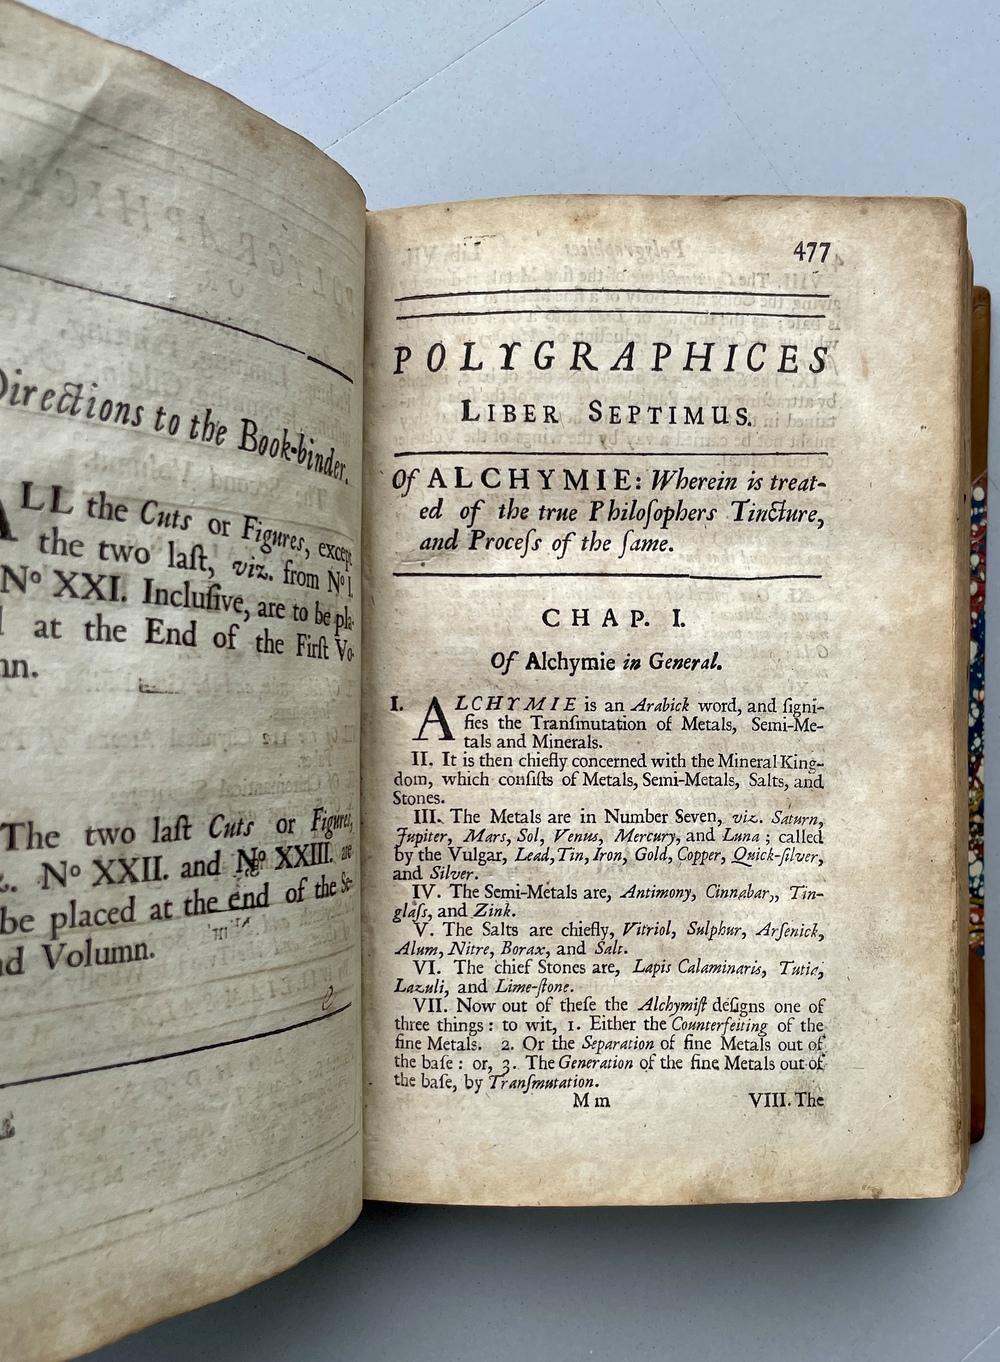 Directions to the Book-binder.
ALL the Cuts or Figures, except
the two laſt, viz. from Nº I.
Nº XXI. Incluſive, are to be pla-
at the End of the Firſt Vo-
The two laſt Cuts or Figures,
Nº XXII. and Nº XXIII. are
be placed at the end of the Se-
Volumn.
477
POLYGRAPHICES
LIBER SEPTIMUS.
Of ALCHYMIE: Wherein is treat-
ed of the true Philoſophers Tincture,
and Proceſs of the ſame.
CHAP. I.
Of Alchymie in General.
I. ALCHYMIE is an Arabick word, and ſigni-
fies the Tranſmutation of Metals, Semi-Me-
tals and Minerals.
II. It is then chiefly concerned with the Mineral King-
dom, which conſiſts of Metals, Semi-Metals, Salts, and
Stones.
III. The Metals are in Number Seven, viz. Saturn,
Jupiter, Mars, Sol, Venus, Mercury, and Luna; called
by the Vulgar, Lead, Tin, Iron, Gold, Copper, Quick-ſilver,
and Silver.
IV. The Semi-Metals are, Antimony, Cinnabar,, Tin-
glaſs, and Zink.
V. The Salts are chiefly, Vitriol, Sulphur, Arſenick,
Alum, Nitre, Borax, and Salt.
VI. The chief Stones are, Lapis Calaminaris, Tutia,
Lazuli, and Lime-ſtone.
VII. Now out of theſe the Alchymiſt deſigns one of
three things: to wit, 1. Either the Counterfeiting of the
fine Metals. 2. Or the Separation of fine Metals out of
the baſe: or, 3. The Generation of the fine Metals out of
the baſe, by Tranſmutation.
M m VIII. The